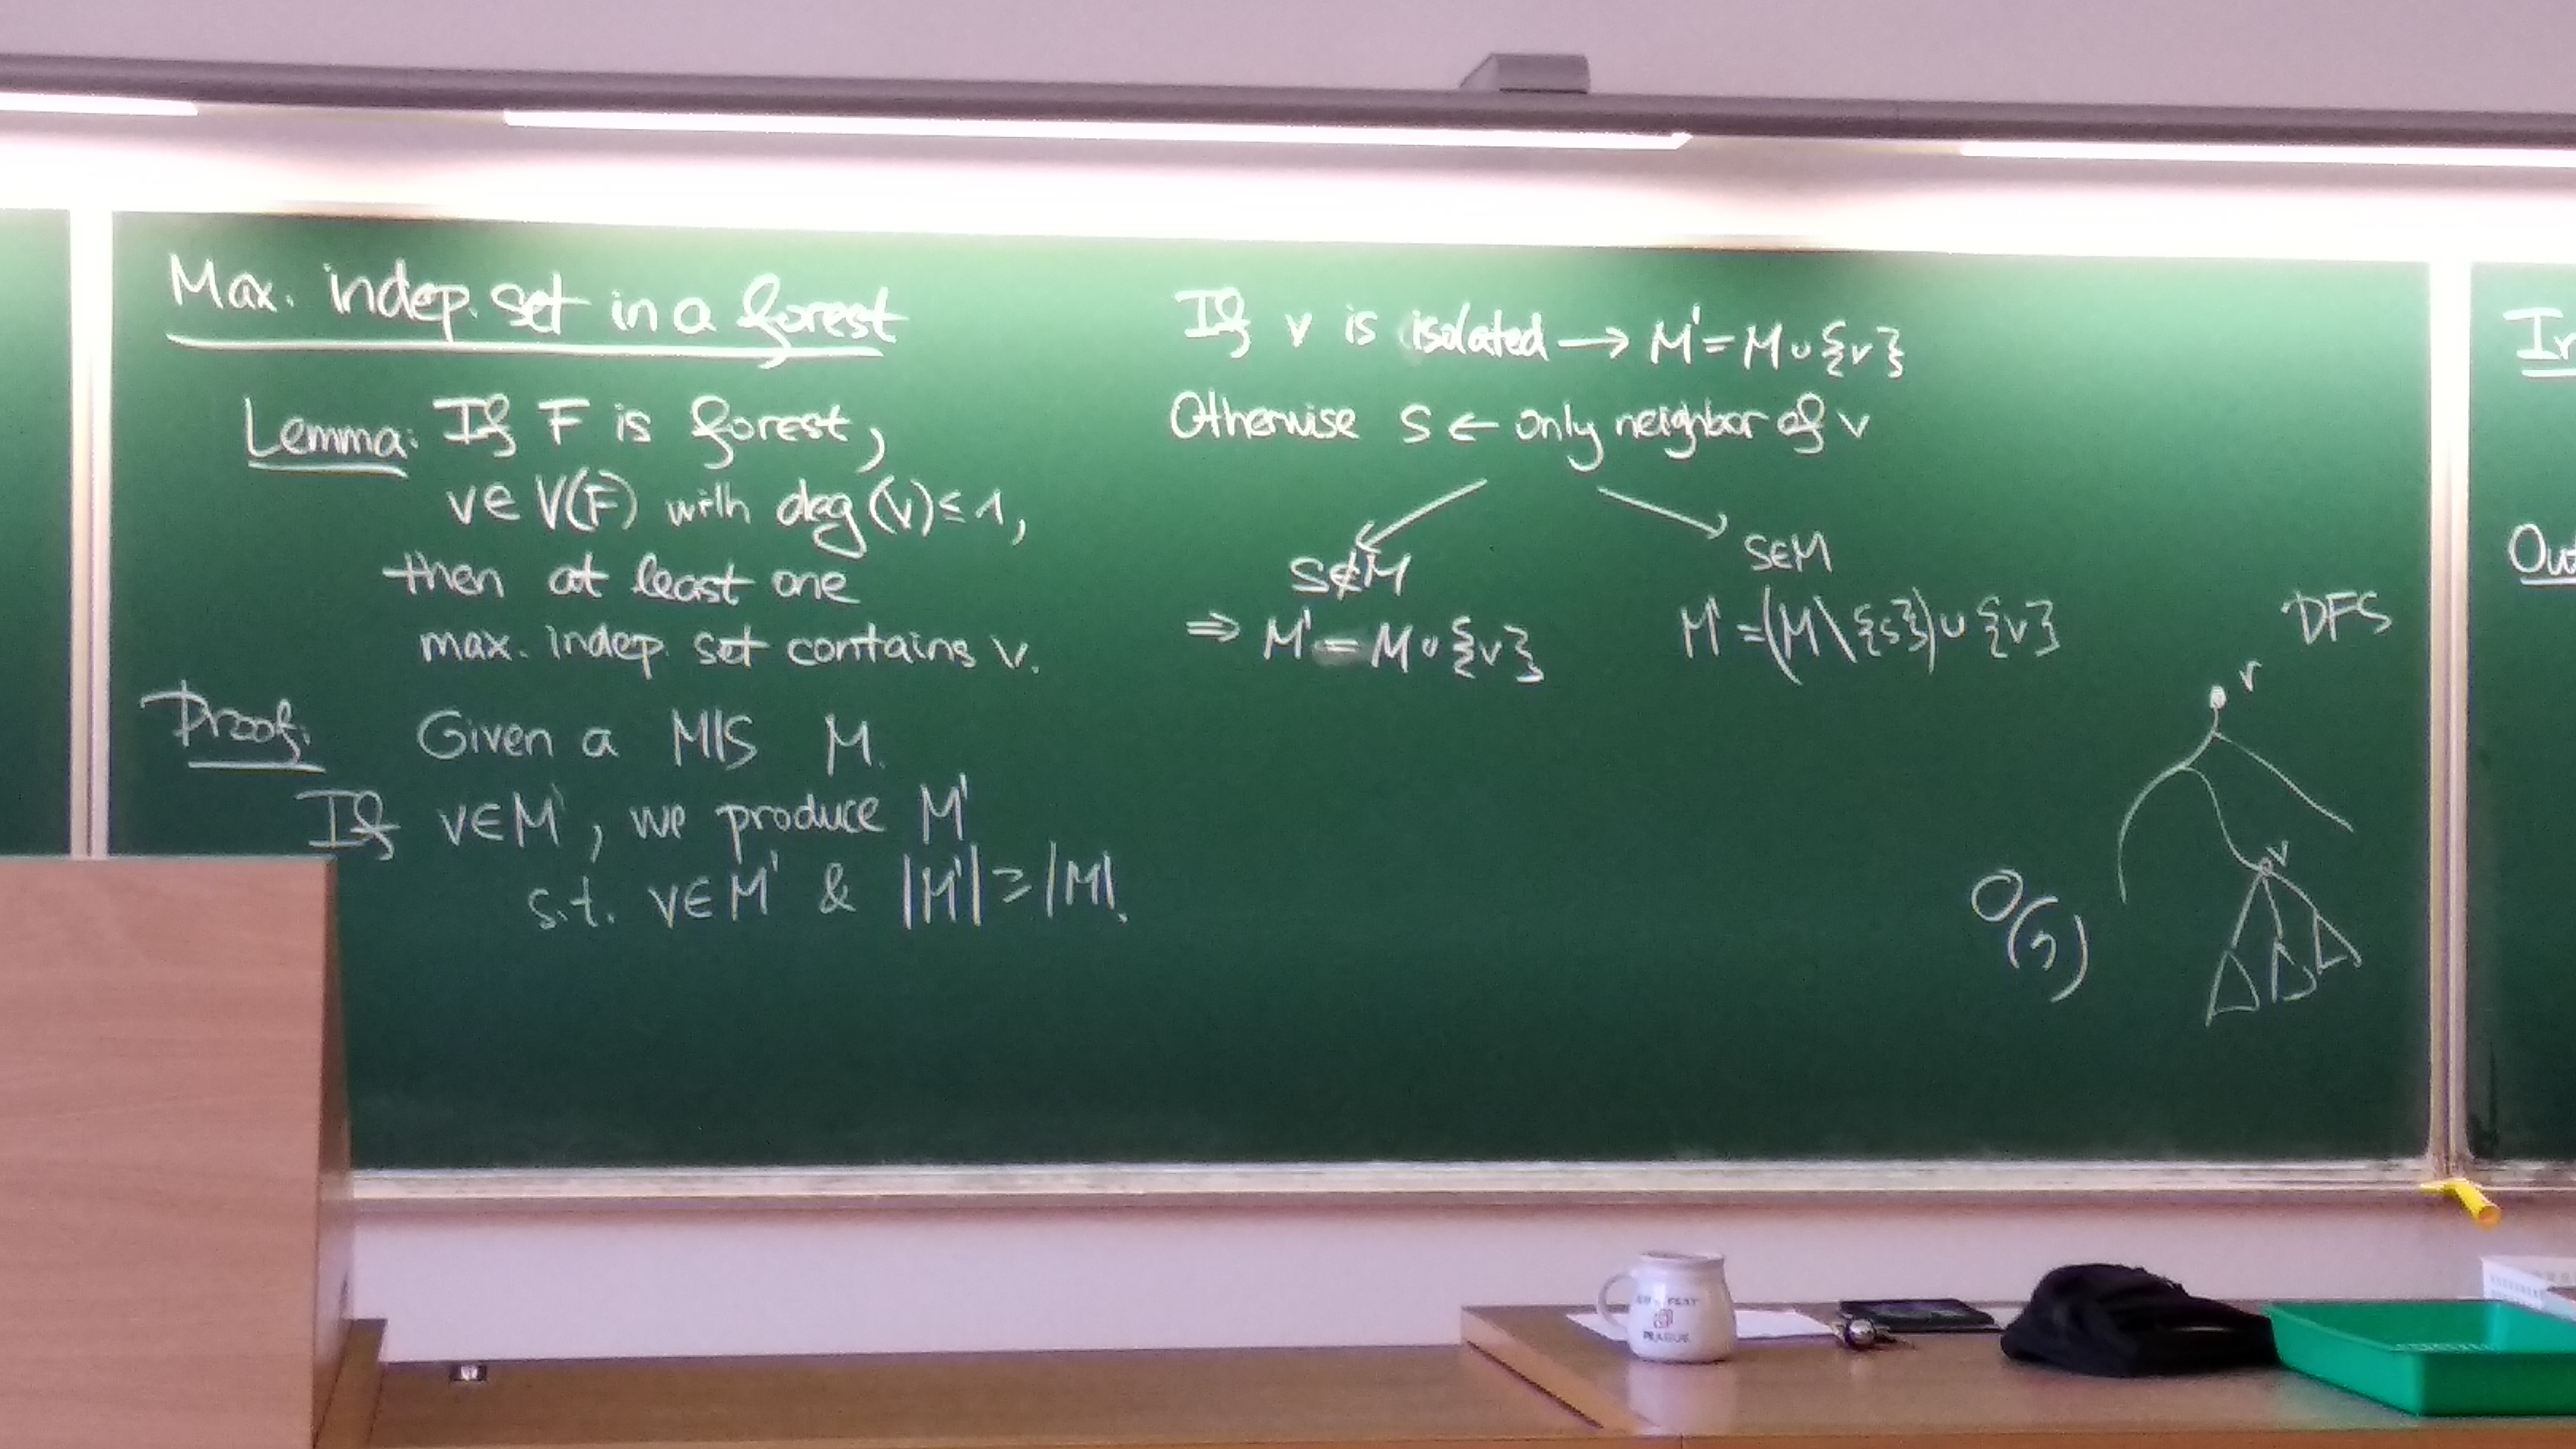 Max. indep. set in a forest
Lemma: If F is forest,
v∈V(F) with deg(v)≤1,
then at least one
max. indep. set contains v.
Proof: Given a MIS M.
If v∈M', we produce M'
s.t. v∈M' & |M'|≥|M|.
If v is isolated → M'=M∪{v}
Otherwise s ← only neighbor of v
s∉M
⇒ M'=M∪{v}
s∈M
M'=(M\{s})∪{v}
DFS
r
v
O(n)
PRAGUE